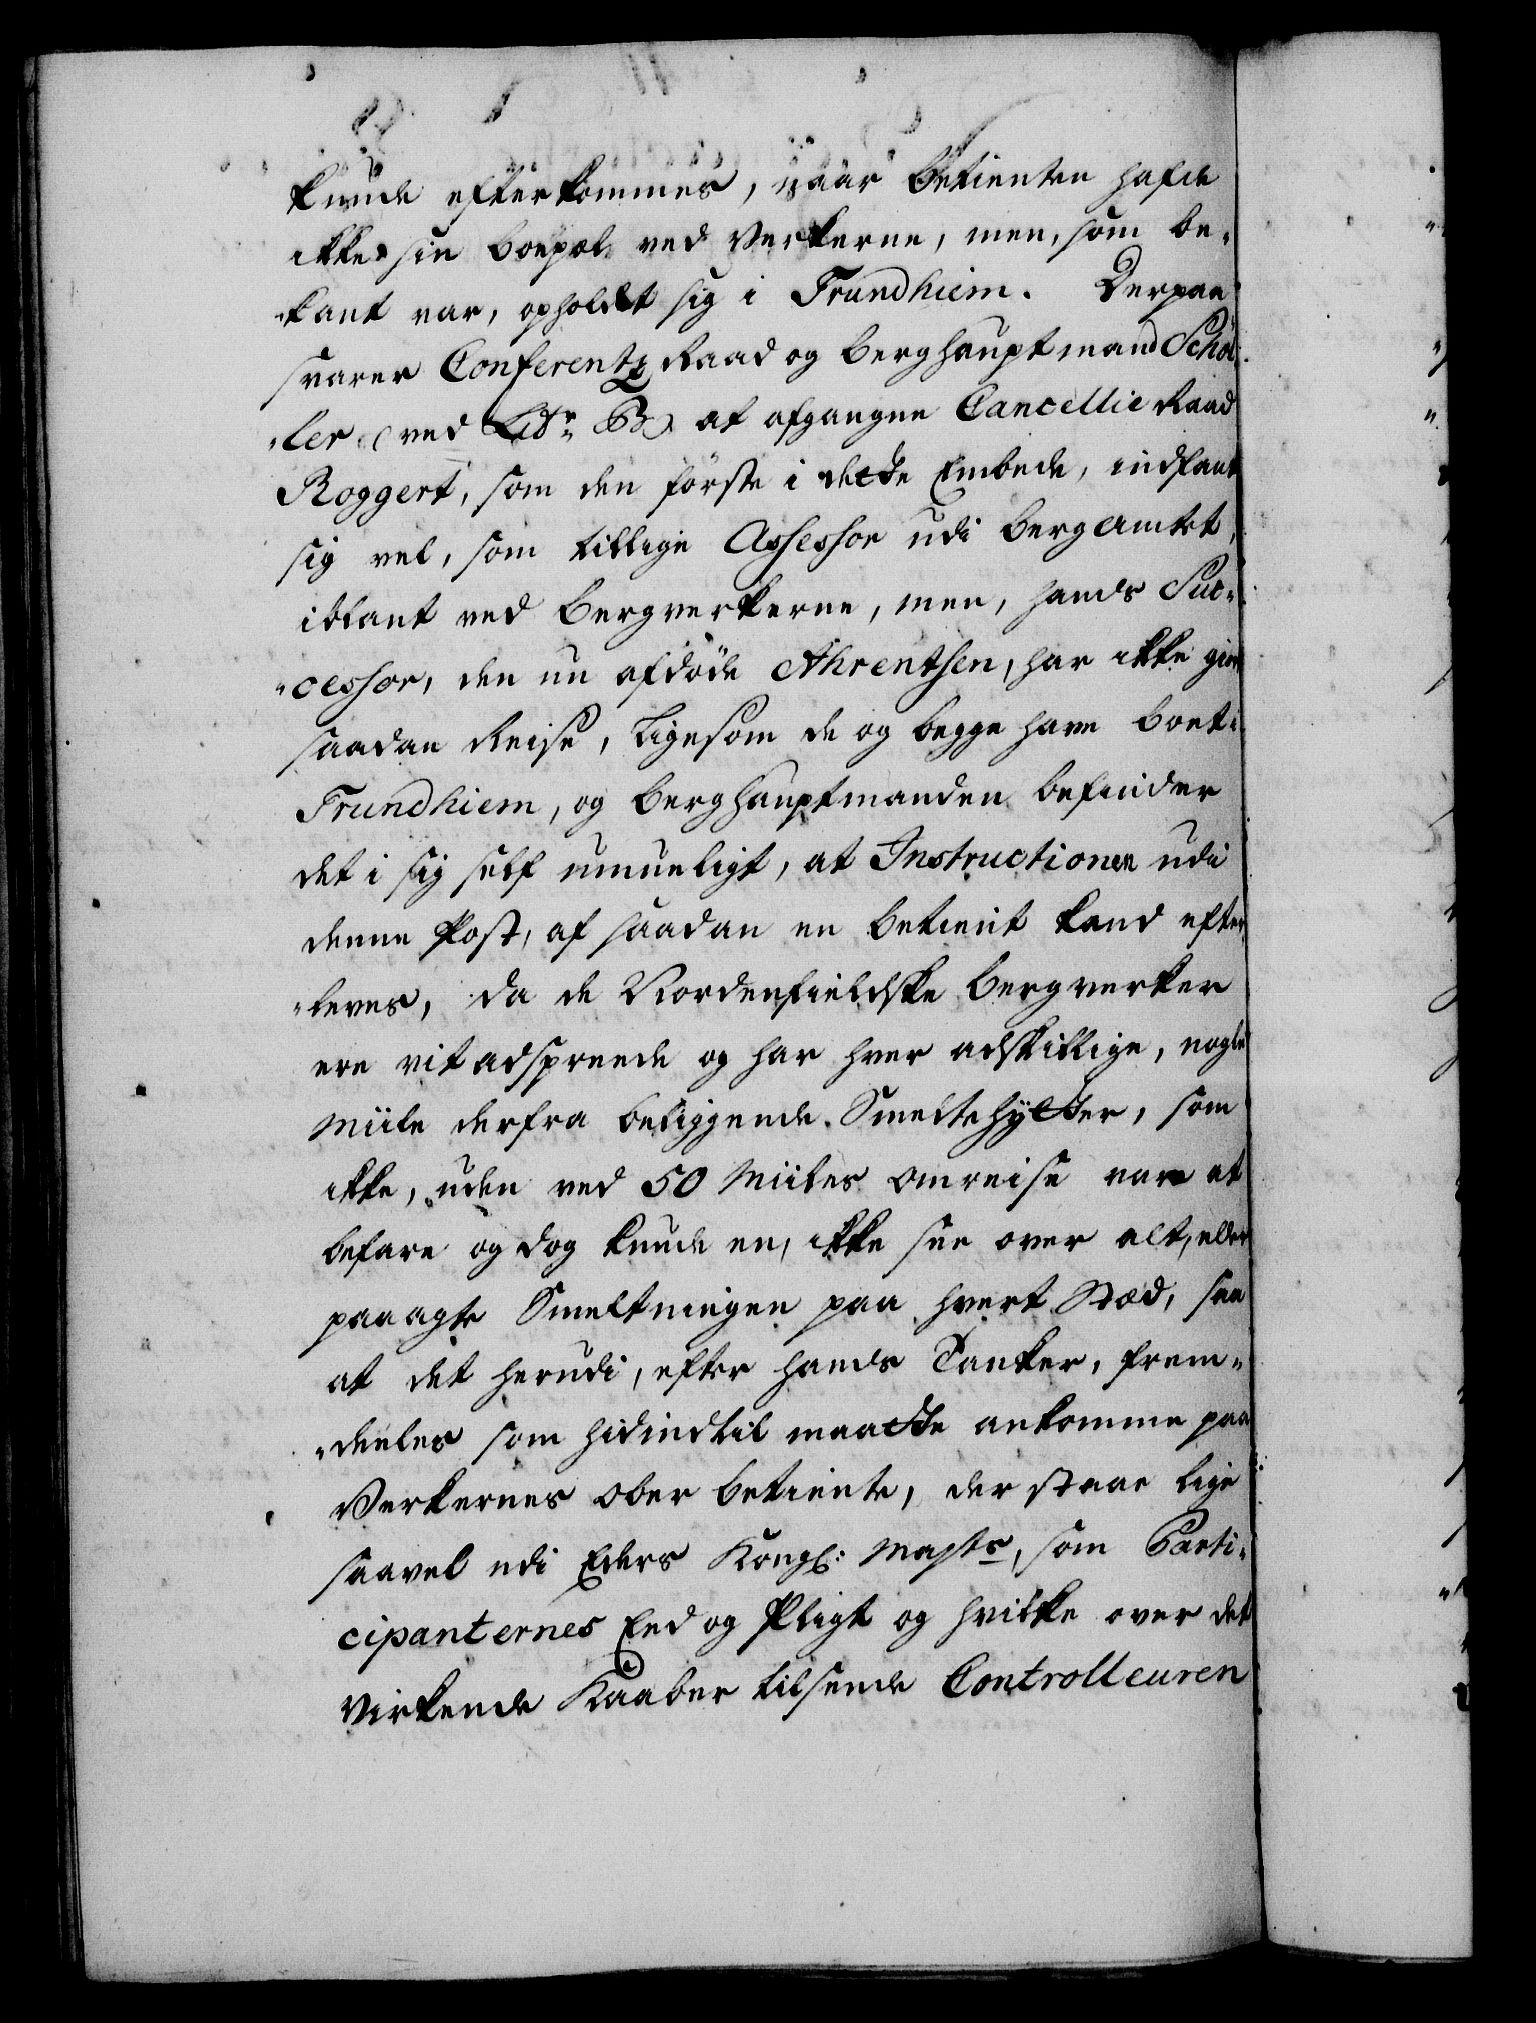 kunde efterkommes, naar Betienten hafde
ikke sin Boepæl ved Verkerne, men, som be-
-kant var, opholdt sig i Trundhiem. Derpaa
svarer Conferentz Raad og Berghauptmand Schøl-
-ler (ved Litr: B) at afgangne Cancellie Raad
Roggert, som den förste i dette Embede, indfant
sig vel, som tillige Assessor udi Bergamtet,
iblant ved Bergverkerne, men, hands Suc-
-cessor, den nu afdöde Ahrentsen, har ikke giort
saadan Reise, ligesom de og begge have boet i
Trundhiem, og Berghauptmanden befinder
det i sig self umueligt, at Instructionen udi
denne Post, af saadan en Betient kand efter-
-leves, da de Nordenfieldske Bergverker
ere vit adspreede og har hver adskillige, nogle
Miile derfra beliggende Smeltehytter, som
ikke, uden ved 50 Miiles Omreise vare at
befare og dog kunde en, ikke see over alt, eller
paaagte Smeltningen paa hvert Stæd, saa
at det herudi, efter hands Tanker, frem-
-deeles som hidindtil maatte ankomme paa
Verkernes Ober Betiente, der staar lige
saavel udi Eders Kongl: Maysts, som Parti-
cipanternes Eed og Pligt og hvilke over det
virkende Kaaber tilsende Controlleuren